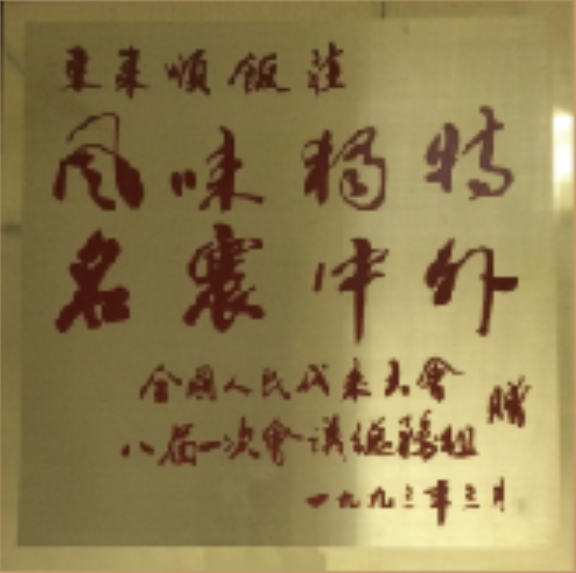 東來順飯莊
风味獨特
名震中外
全國人民代表大會
八届一次會議總務組
贈
一九九三年三月